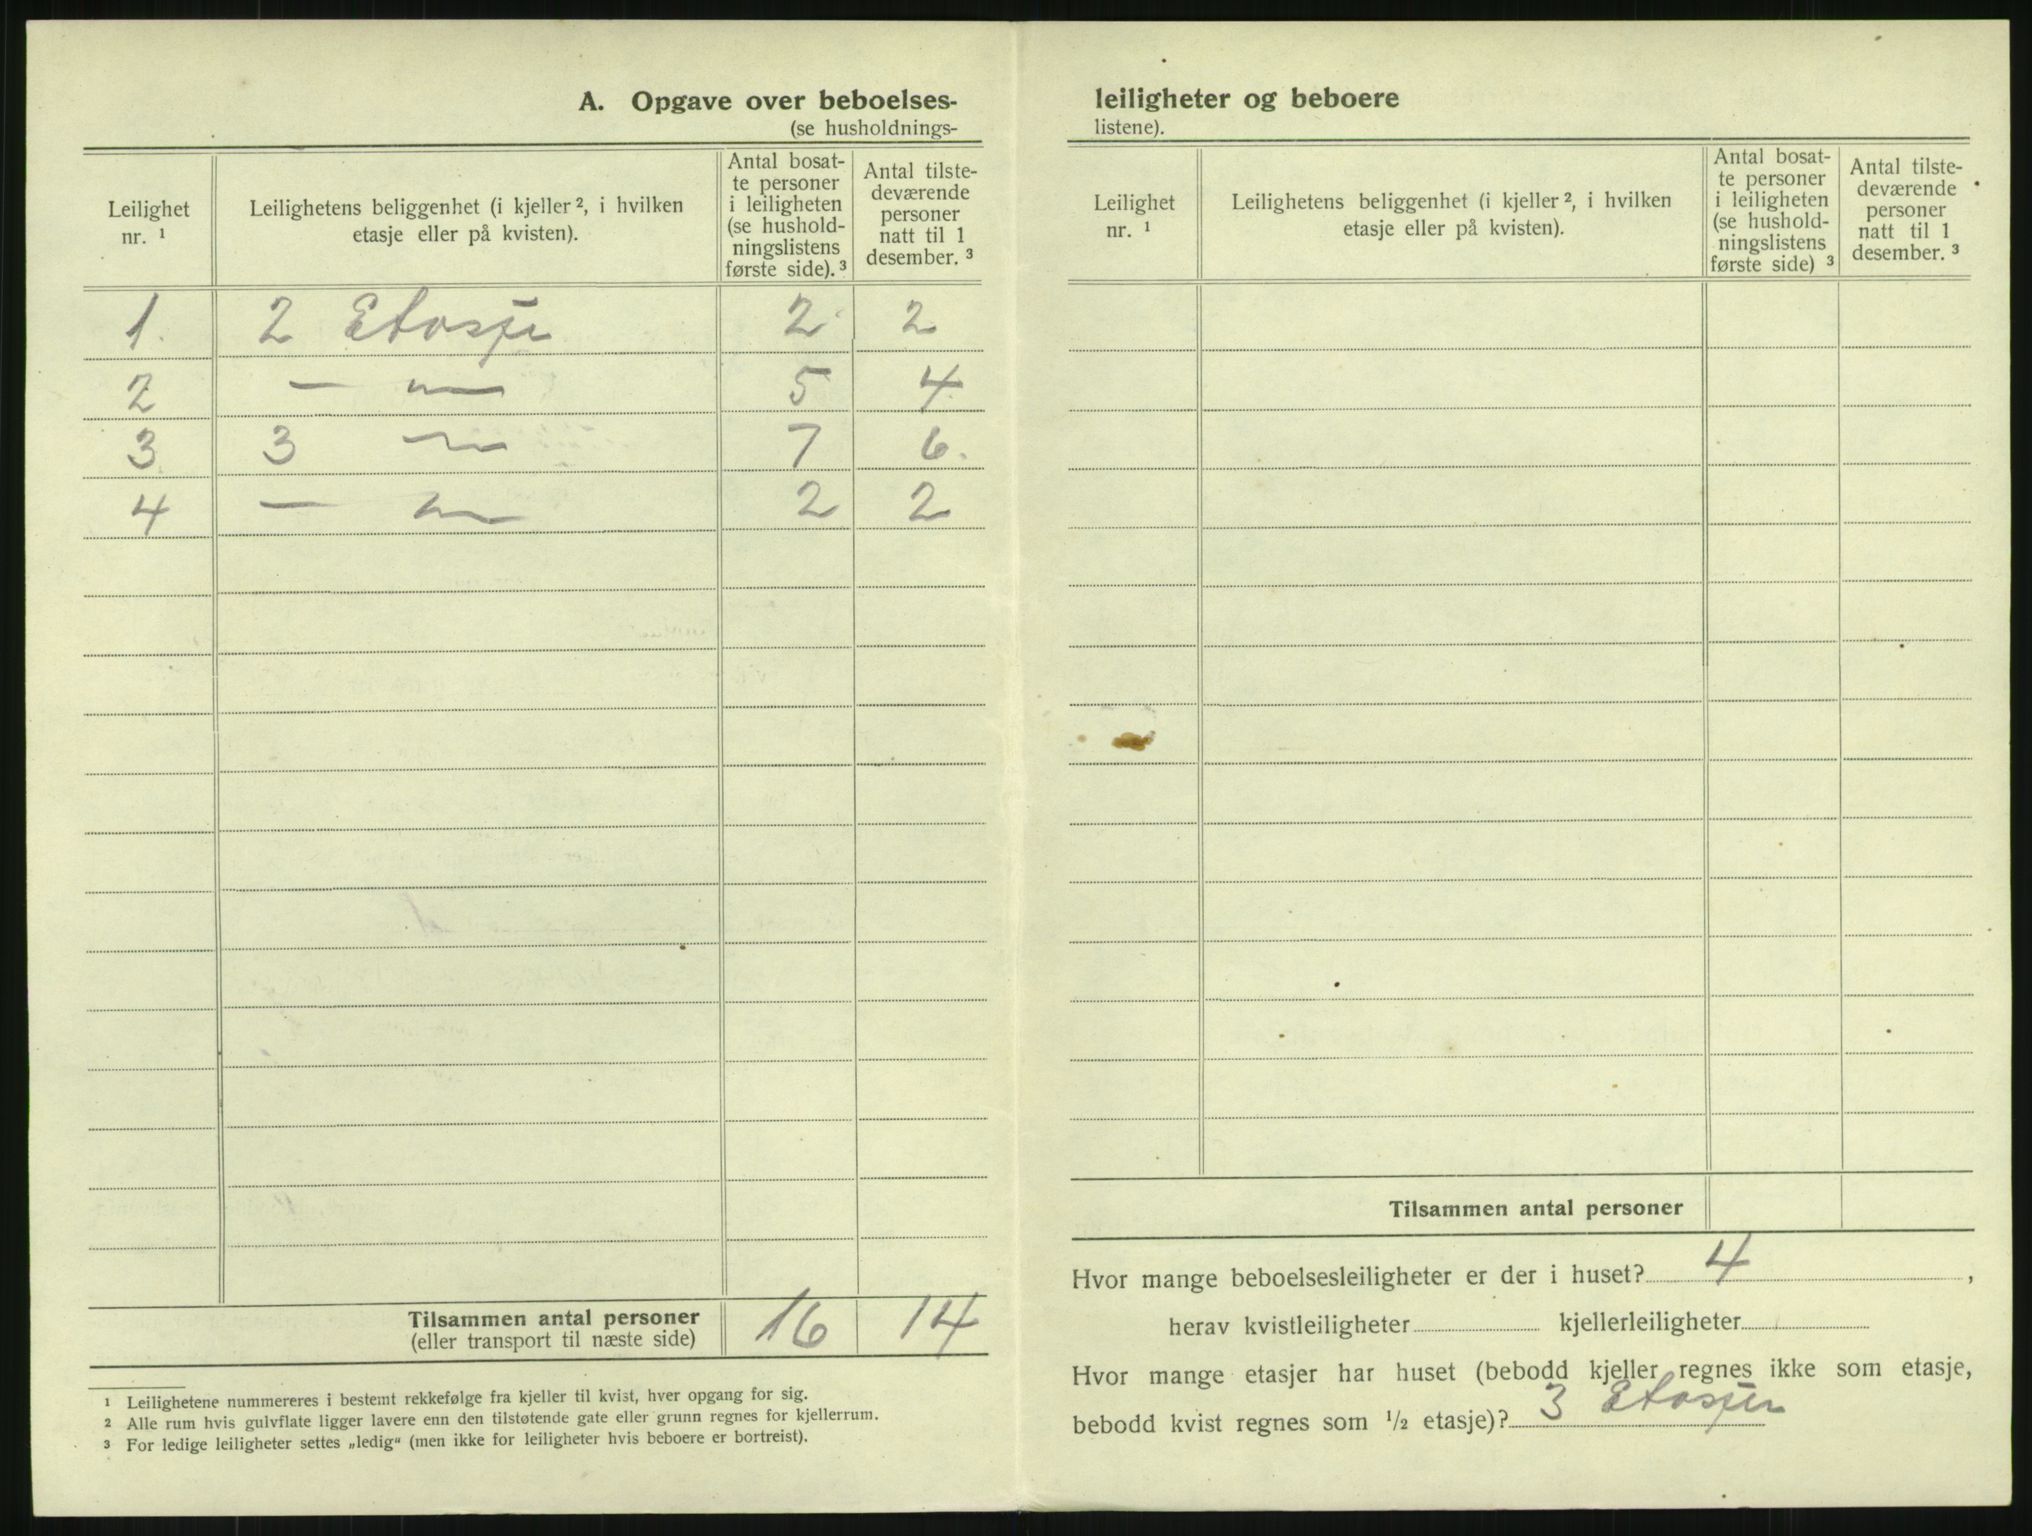 A. Opgave over beboelses-
(se husholdnings-
Leilighet nr. ¹
Leilighetens beliggenhet (i kjeller ², i hvilken
etasje eller på kvisten).
Antal bosat-
te personer
i leiligheten
(se hushold-
ningslistens
første side). ³
Antal tilste-
deværende
personer
natt til 1
desember. ³
1. 2 Etasje 2 2
2 — 5 4
3 3 7 6.
4 — 2 2
Tilsammen antal personer 16 14
(eller transport til næste side)
¹ Leilighetene nummereres i bestemt rekkefølge fra kjeller til kvist, hver opgang for sig.
² Alle rum hvis gulvflate ligger lavere enn den tilstøtende gate eller grunn regnes for kjellerrum.
³ For ledige leiligheter settes „ledig“ (men ikke for leiligheter hvis beboere er bortreist).
leiligheter og beboere
listene).
Leilighet
nr. ¹
Leilighetens beliggenhet (i kjeller ², i hvilken
etasje eller på kvisten).
Antal bosat-
te personer
i leiligheten
(se hushold-
ningslistens
første side) ³
Antal tilste-
deværende
personer
natt til 1
desember. ³
Tilsammen antal personer
Hvor mange beboelsesleiligheter er der i huset? 4 ,
herav kvistleiligheter kjellerleiligheter
Hvor mange etasjer har huset (bebodd kjeller regnes ikke som etasje,
bebodd kvist regnes som ½ etasje)? 3 Etasjer